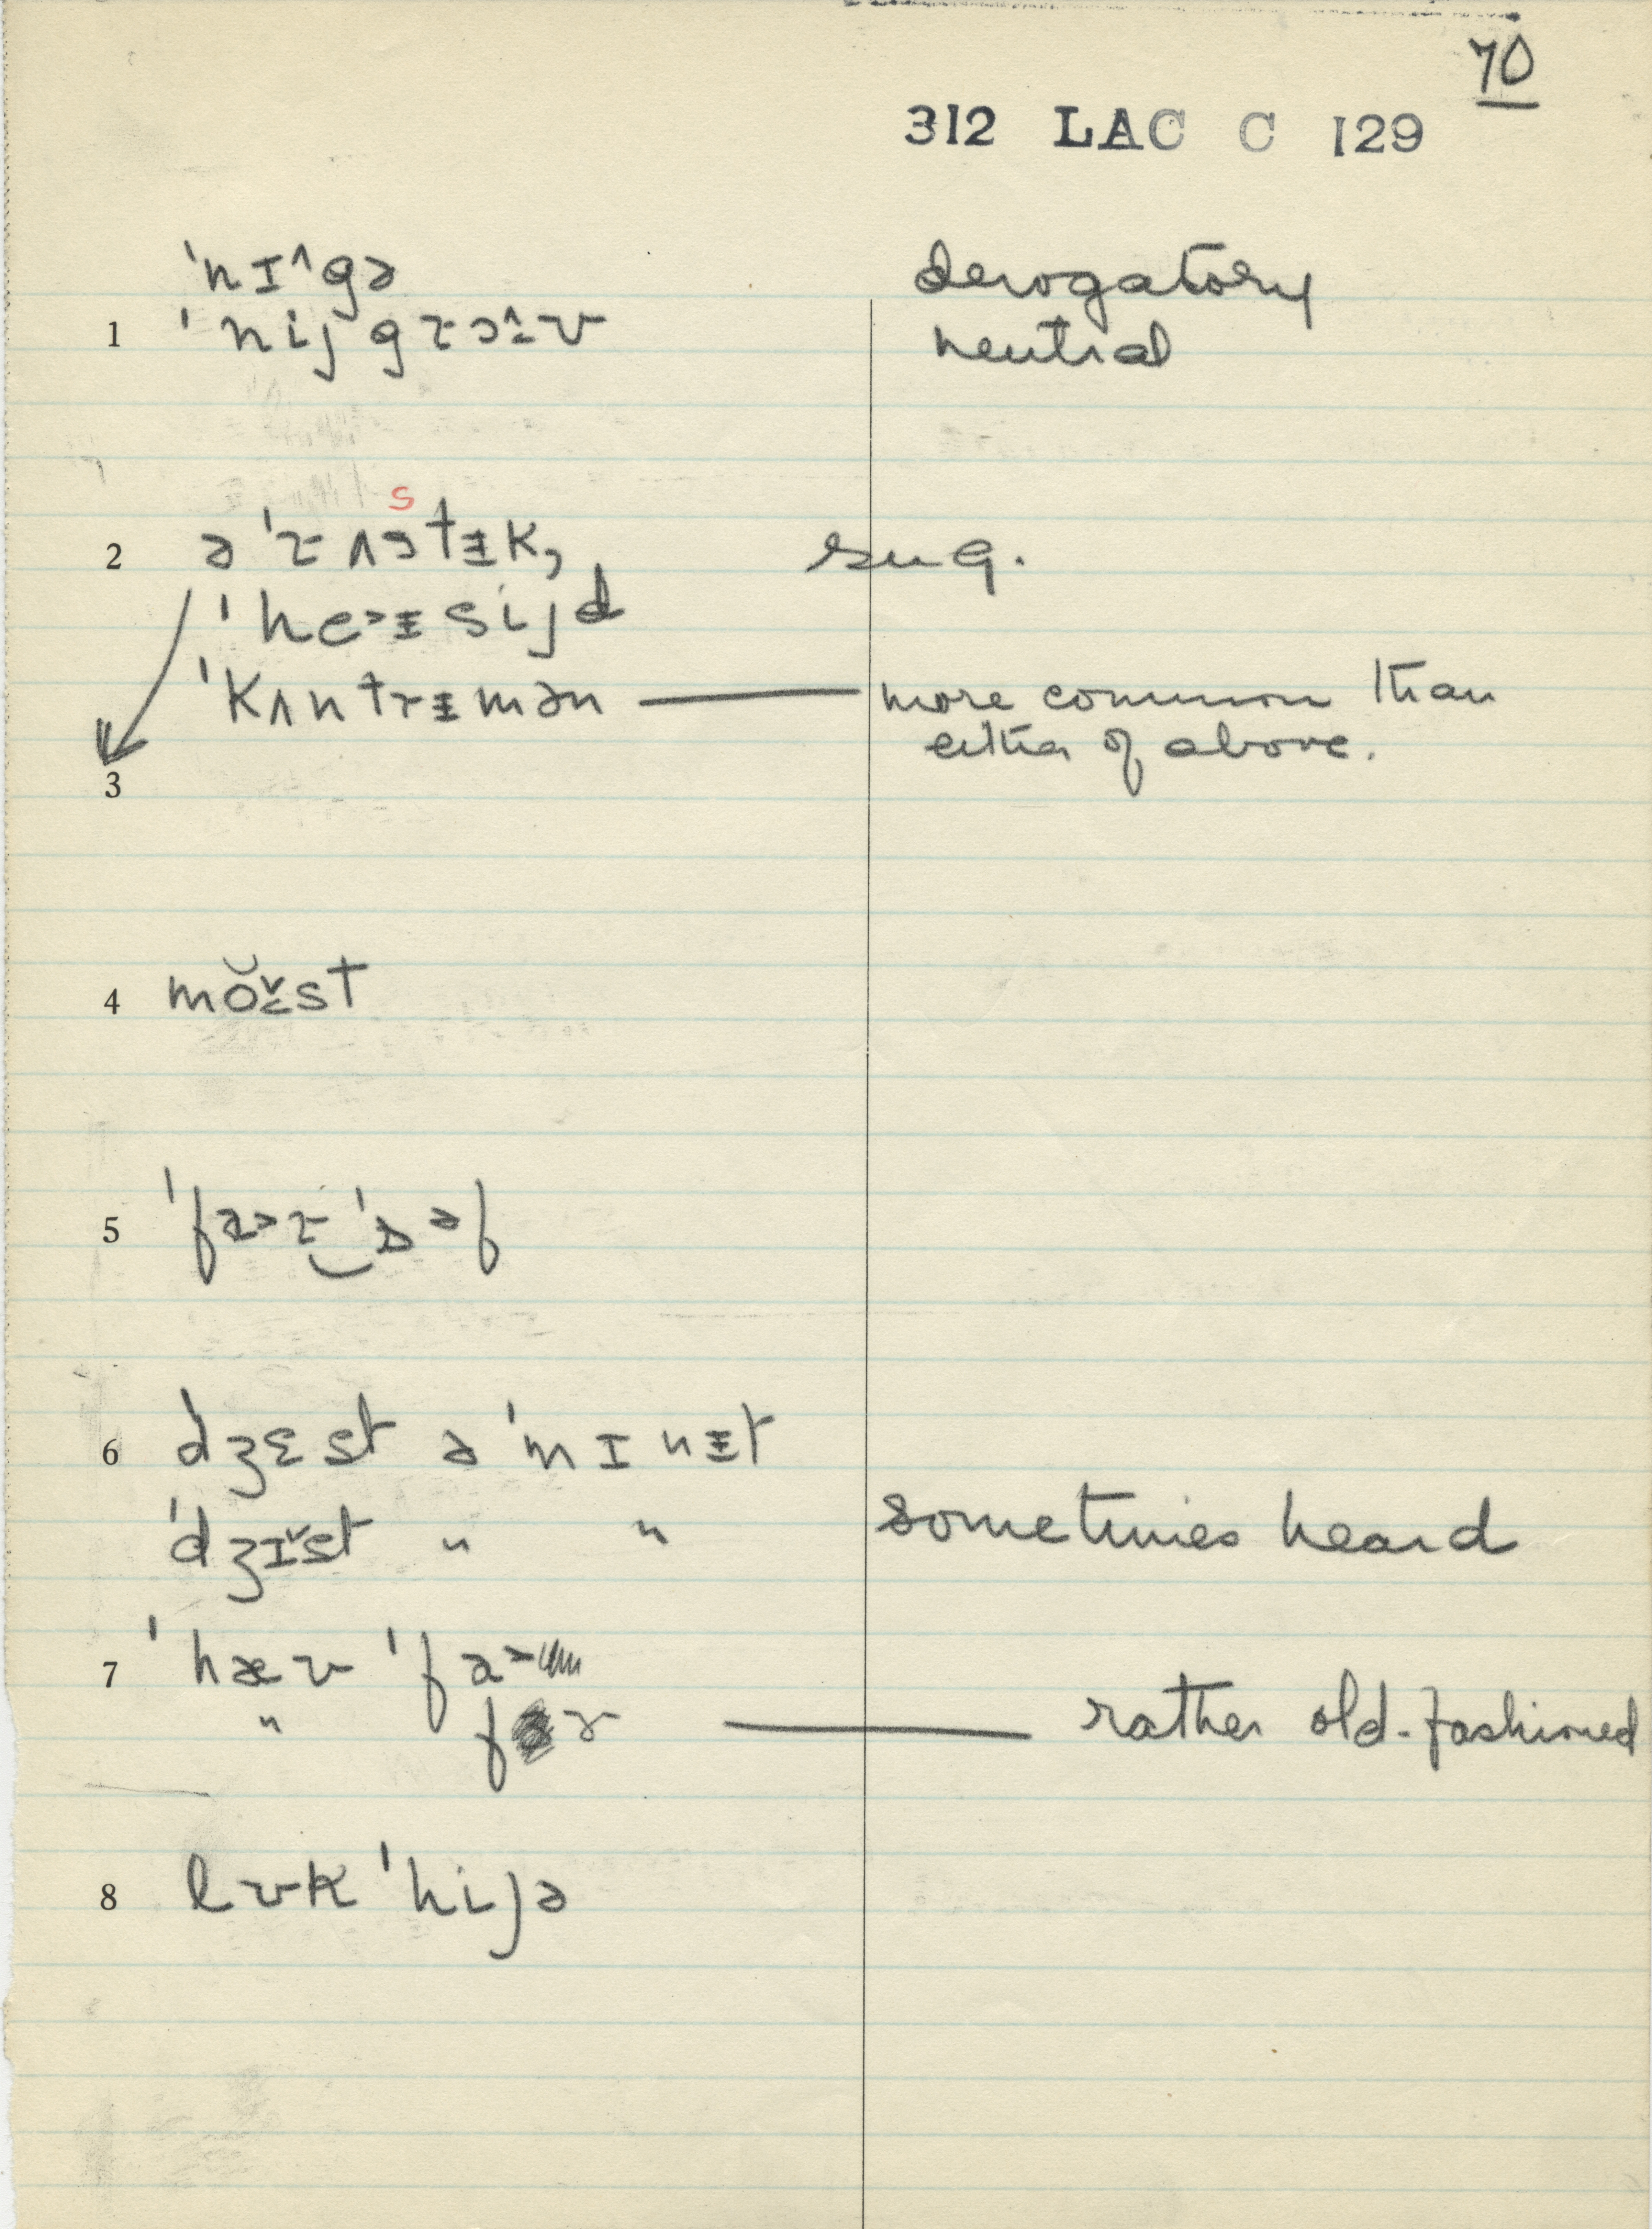 70
312 LAC C 129
ˈnɪ^gə derogatory
1 ˈnijgrɔ˔ʊ neutral
s
2 əˈrʌstɪ̵k, sug.
ˈheɚɪ̵sijd
ˈkʌntrɪ̵mən — more common than
either of above.
3
4 mŏv̌st
5 ˈfa>r‿ˈɒəf
6 dʒɛst əˈmɪnɪ̵t
ˈdʒɪ̌st " " sometimes heard
7 ˈhæv ˈfa>
" f r — rather old-fashioned
8 lʊk ˈhijə